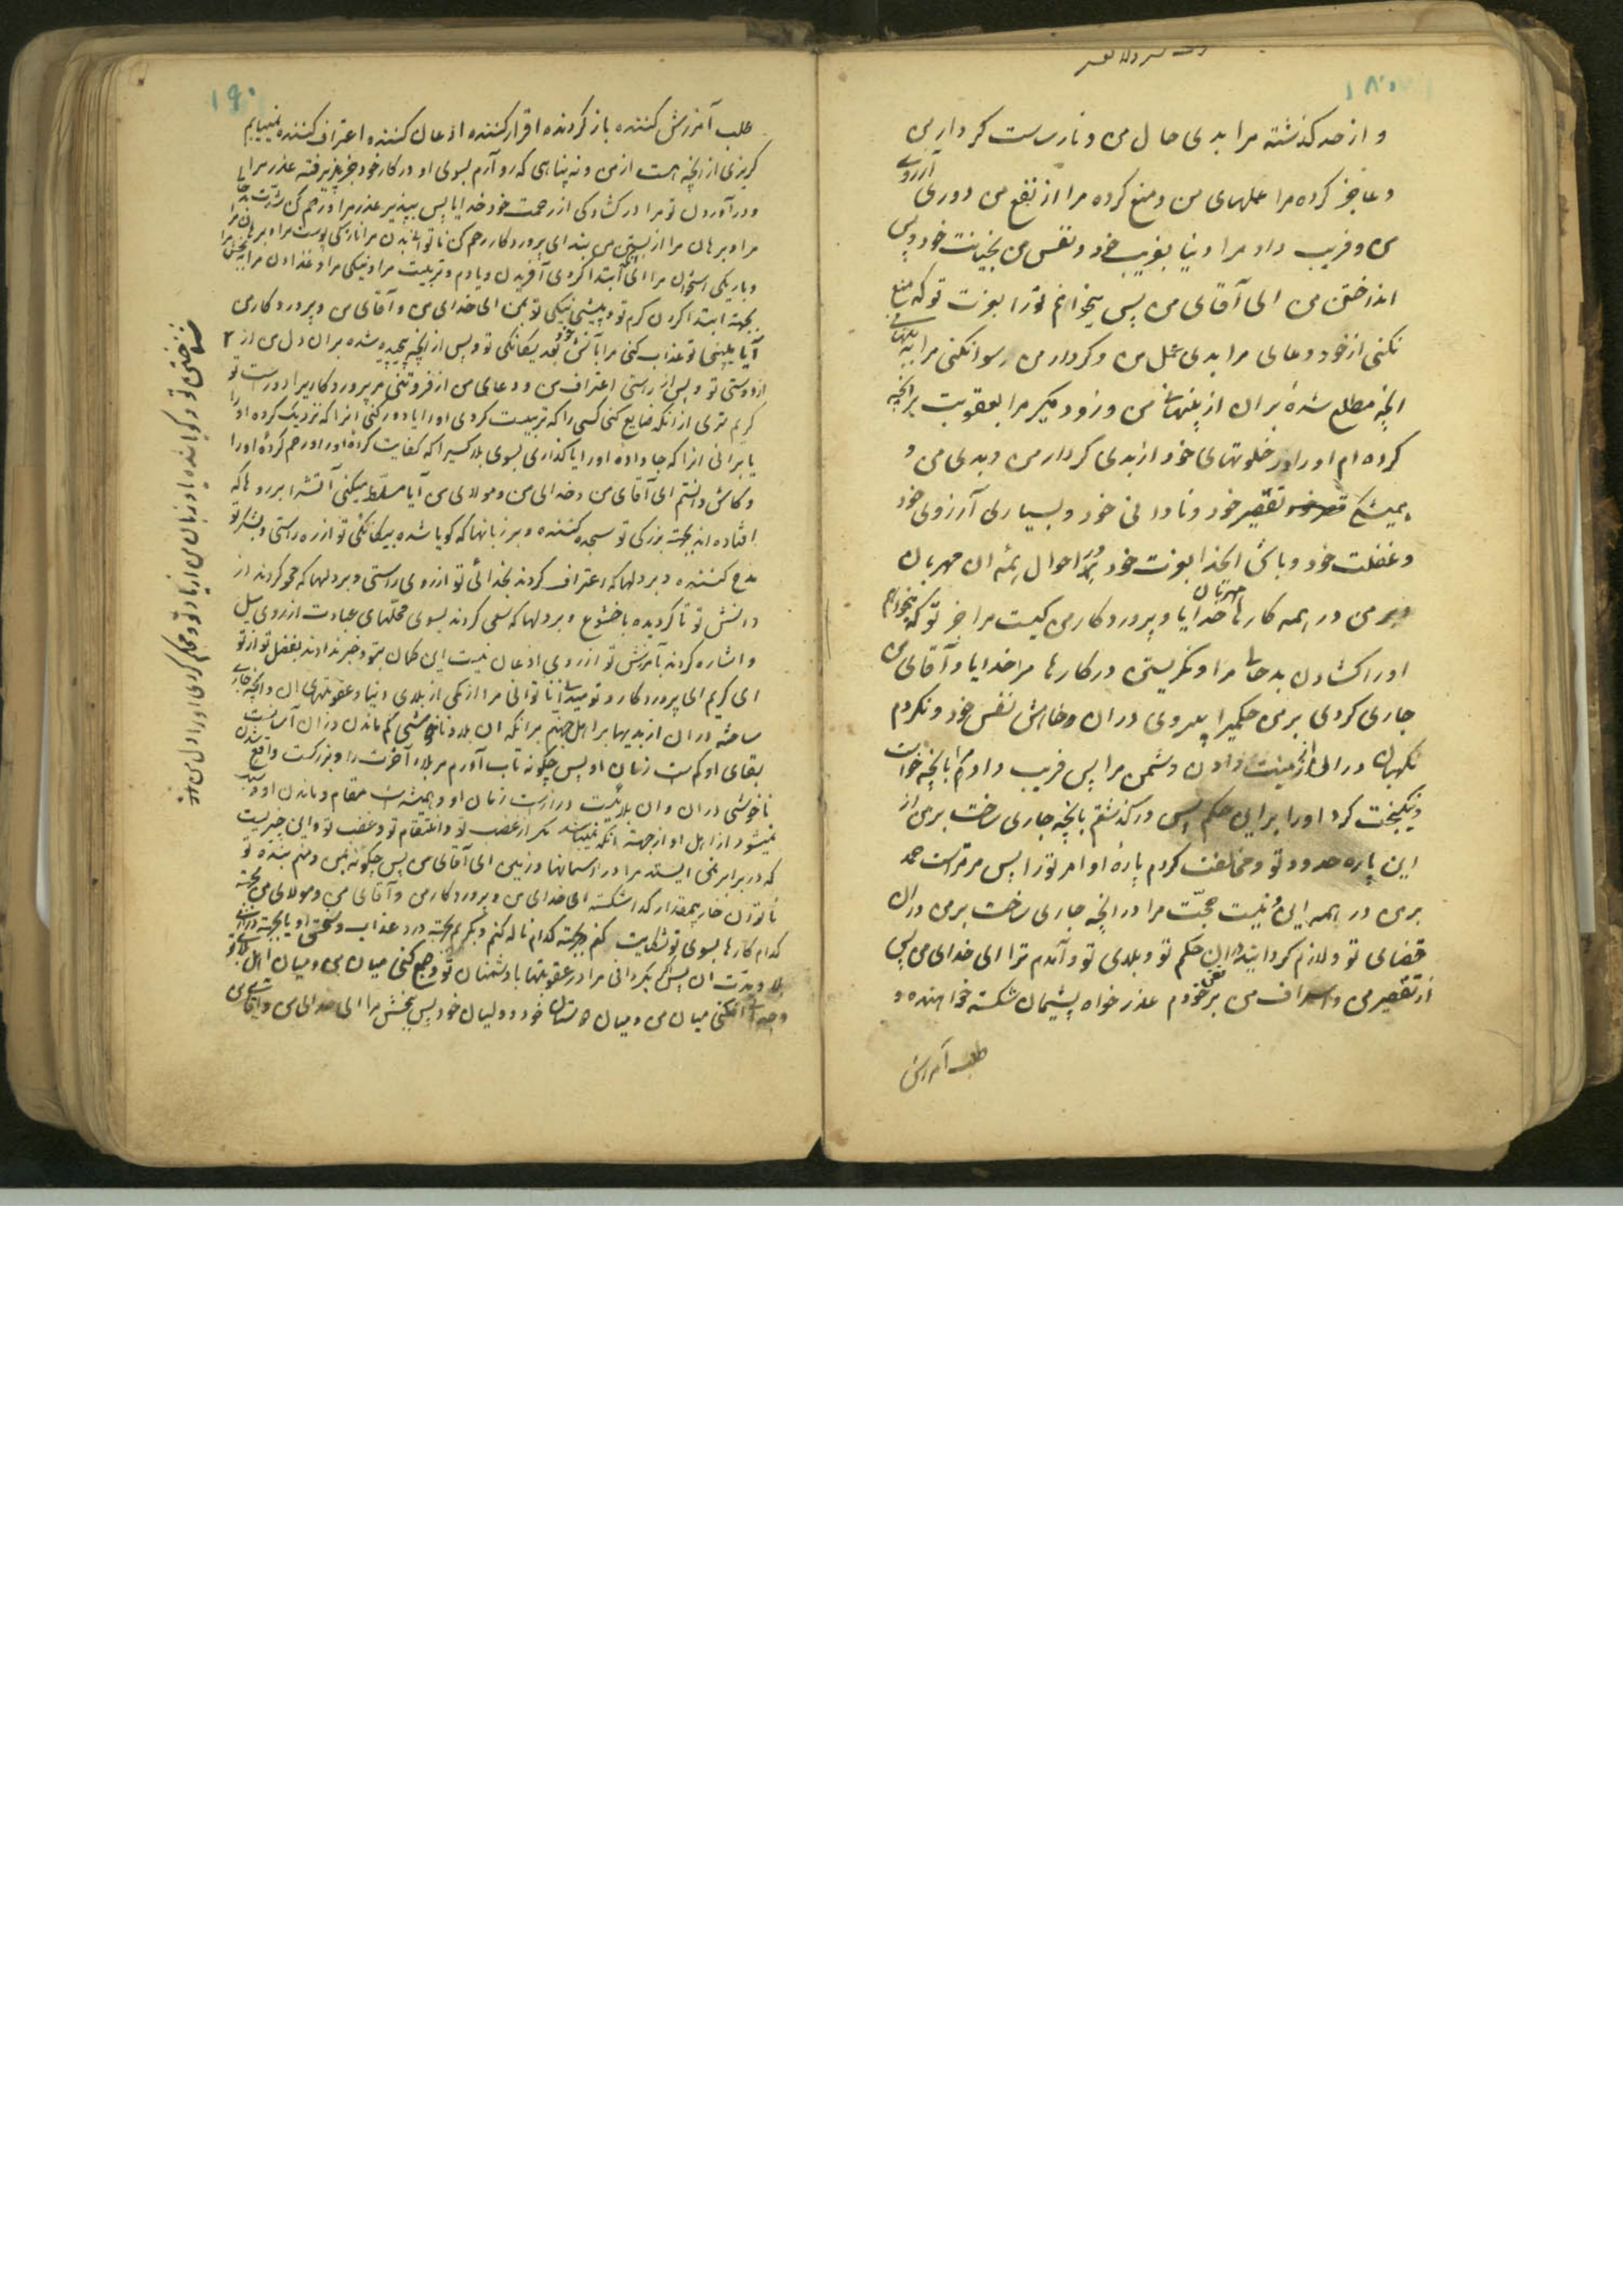 ۱۸۰
و از حد گذشته مرا بدی حال من و نارساست کردار من
و عاجز کرده مرا عملهای من و منع کرده مرا از نفع من دوری آرزوی
من و فریب داد مرا دنیا بفریب خود و نفس من بخیانت خود و پس
انداختن من ای آقای من پس میخوانم تو را بعزت تو که منع
نکنی از خود دعای مرا بدی عمل من و کردار من رسوا نکنی مرا به پنهانی
آنچه مطلع شدهٔ بر ان از پنهانی من و زود مگیر مرا بعقوبت بر آنچه
کرده ام او را در خلوتهای خود از بدی کردار من و بدی من و
همیشگی تقصیر خود و نادانی خود و بسیاری آرزوی خود
و غفلت خود و باش ای خدا بعزت خود در احوال همه ان مهربان
من در همه کارها مهربان خدایا و پروردگار من کیست مرا جز تو که بخواهم
او را گشادن بد حالی مرا و نگریستن در کارها مرا خدایا و آقای من
جاری کردی بر من حکمیرا پیروی در ان خاهش نفس خود و نکردم
نگهبان در ان از زینت دادن دشمن مرا پس فریب داد مرا بآنچه خواست
و نیکبخت کرد او را بر این حکم پس در گذشتم بآنچه جاری ساخت بر من از
این پاره حدود تو و مخالفت کردم پارهٔ اوامر تو را پس مر تراست حمد
بر من در همه این و نیست حجّت مرا در آنچه جاری ساخت بر من در ان
قضای تو و لازم گردانید این حکم تو و بلای تو و آمدم ترا ای خدای من پس
از تقصیر من و اسراف من بر نفس خودم عذر خواه پشیمان شکسته خواهنده و
طلب آمرزش
۱۹۰
طلب آمرزش کننده باز گردنده اقرار کننده اذعان کننده اعتراف کننده نمییابم
گریزی از آنچه هست از من و نه پناهی که رو آرم بسوی او در کار خود جز پذیرفتن عذر مرا
و در آوردن تو مرا در گشادگی از رحمت خود خدایا پس بپذیر عذر مرا و رحم کن سختی
مرا و برهان مرا از بستگی من بند ای پروردگار رحم کن ناتوانی بدن مرا نازکی پوست مرا
و باریکی استخوان مرا ای آنکه ابتدا کردی آفریدن و یادم و تربیت مرا و نیکی مرا و غذا دادن مرا
بجهة ابتدا کردن کرم تو و پیشی نیکی تو بمن ای خدای من و آقای من و پروردگار من
آیا بینی تو عذاب کنی مرا بآتش خود بعد یگانگی تو و پس از آنچه پیچیده شده بر ان دل من از
شناختن تو و گویا شده باو زبان من از یاد تو و محکم کردی او را دل من از
دوستی تو و پس از راستی اعتراف من و دعای من از فروتنی مر پروردگاریرا دور است تو
کریم تری از آنکه ضایع کنی کسی را که تربیت کردی او را یا دور کنی آنرا که نزدیک کرده او را
یا برانی آنرا که جا داده او را یا گذاری بسوی بلا کسیرا که کفایت کرده او را و رحم کردهٔ او را
و کاش دانستم ای آقای من و خدای من و مولای من آیا مسلّط میکنی آتش را بر روها که
افتاده اند بجهت بزرگی تو سجده کننده و بر زبانها که گویا شده بیگانگی تو از ره راستی و بشکر تو
مدح کننده و بر دلها که اعتراف کردند بخدائی تو از روی راستی و بر دلها که جمع کردند از
دانش تو تا گردیده با خشوع و بر دلها که سعی کردند بسوی محلّهای عبادت از روی میل
و اشاره کردند بآمرزش تو از روی اذعان نیست این گمان بتو و خبر ندادند بفضل تو از تو
ای کریم ای پروردگار و تو میدانی ناتوانی مرا از کمی از بلای دنیا و عقوبتهای ان و آنچه جاری
ساخته در ان از بدیها بر اهل جهنم بر انکه ان بلا و ناخوشی کم ماندن در ان آسانست
بقای او کم ست زمان او پس چگونه تاب آورم مر بلاء آخرت را و بزرگست واقع شدن
ناخوشی در ان و ان بلائیست درازست زمان او و همیشه است مقام و ماندن او و
نمیشود از اهل او از جهته انکه نمیباشد مگر از غضب تو و انتقام تو و غضب تو و این چیزیست
که در برابر نمی ایستد مرا و را آسمانها و زمین ای آقای من پس چگونه بمن و منم بنده تو
ناتوان خوار بیمقدار گدا شکسته ای خدای من و پروردگار من و آقای من و مولای من بجهته
کدام کارها بسوی تو شکایت کنم و بجهته کدام ناله کنم و بگریم بجهته درد عذاب و سختی او یا بجهته درازی
بلا و مدّت ان پس اگر بگردانی مرا در عقوبتها با دشمنان تو و جمع کنی میان من و میان اهل بلای تو
و جدا کنی میان من و میان دوستان خود و ولیان خود پس ببخش مرا ای خدای من و آقای من